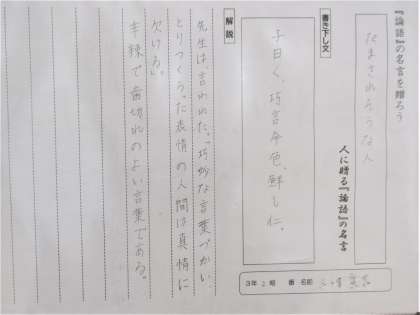 『論語』の名言を贈ろう
だまされそうな人
人に贈る『論語』の名言
書き下し文
子曰く、巧言令色、鮮し仁。
3年2組 番 名前
解説
先生は、言われた。「巧妙な言葉づかい、
とりつくろった表情の人間は真情に
欠ける。」
辛辣で歯切れのよい言葉である。